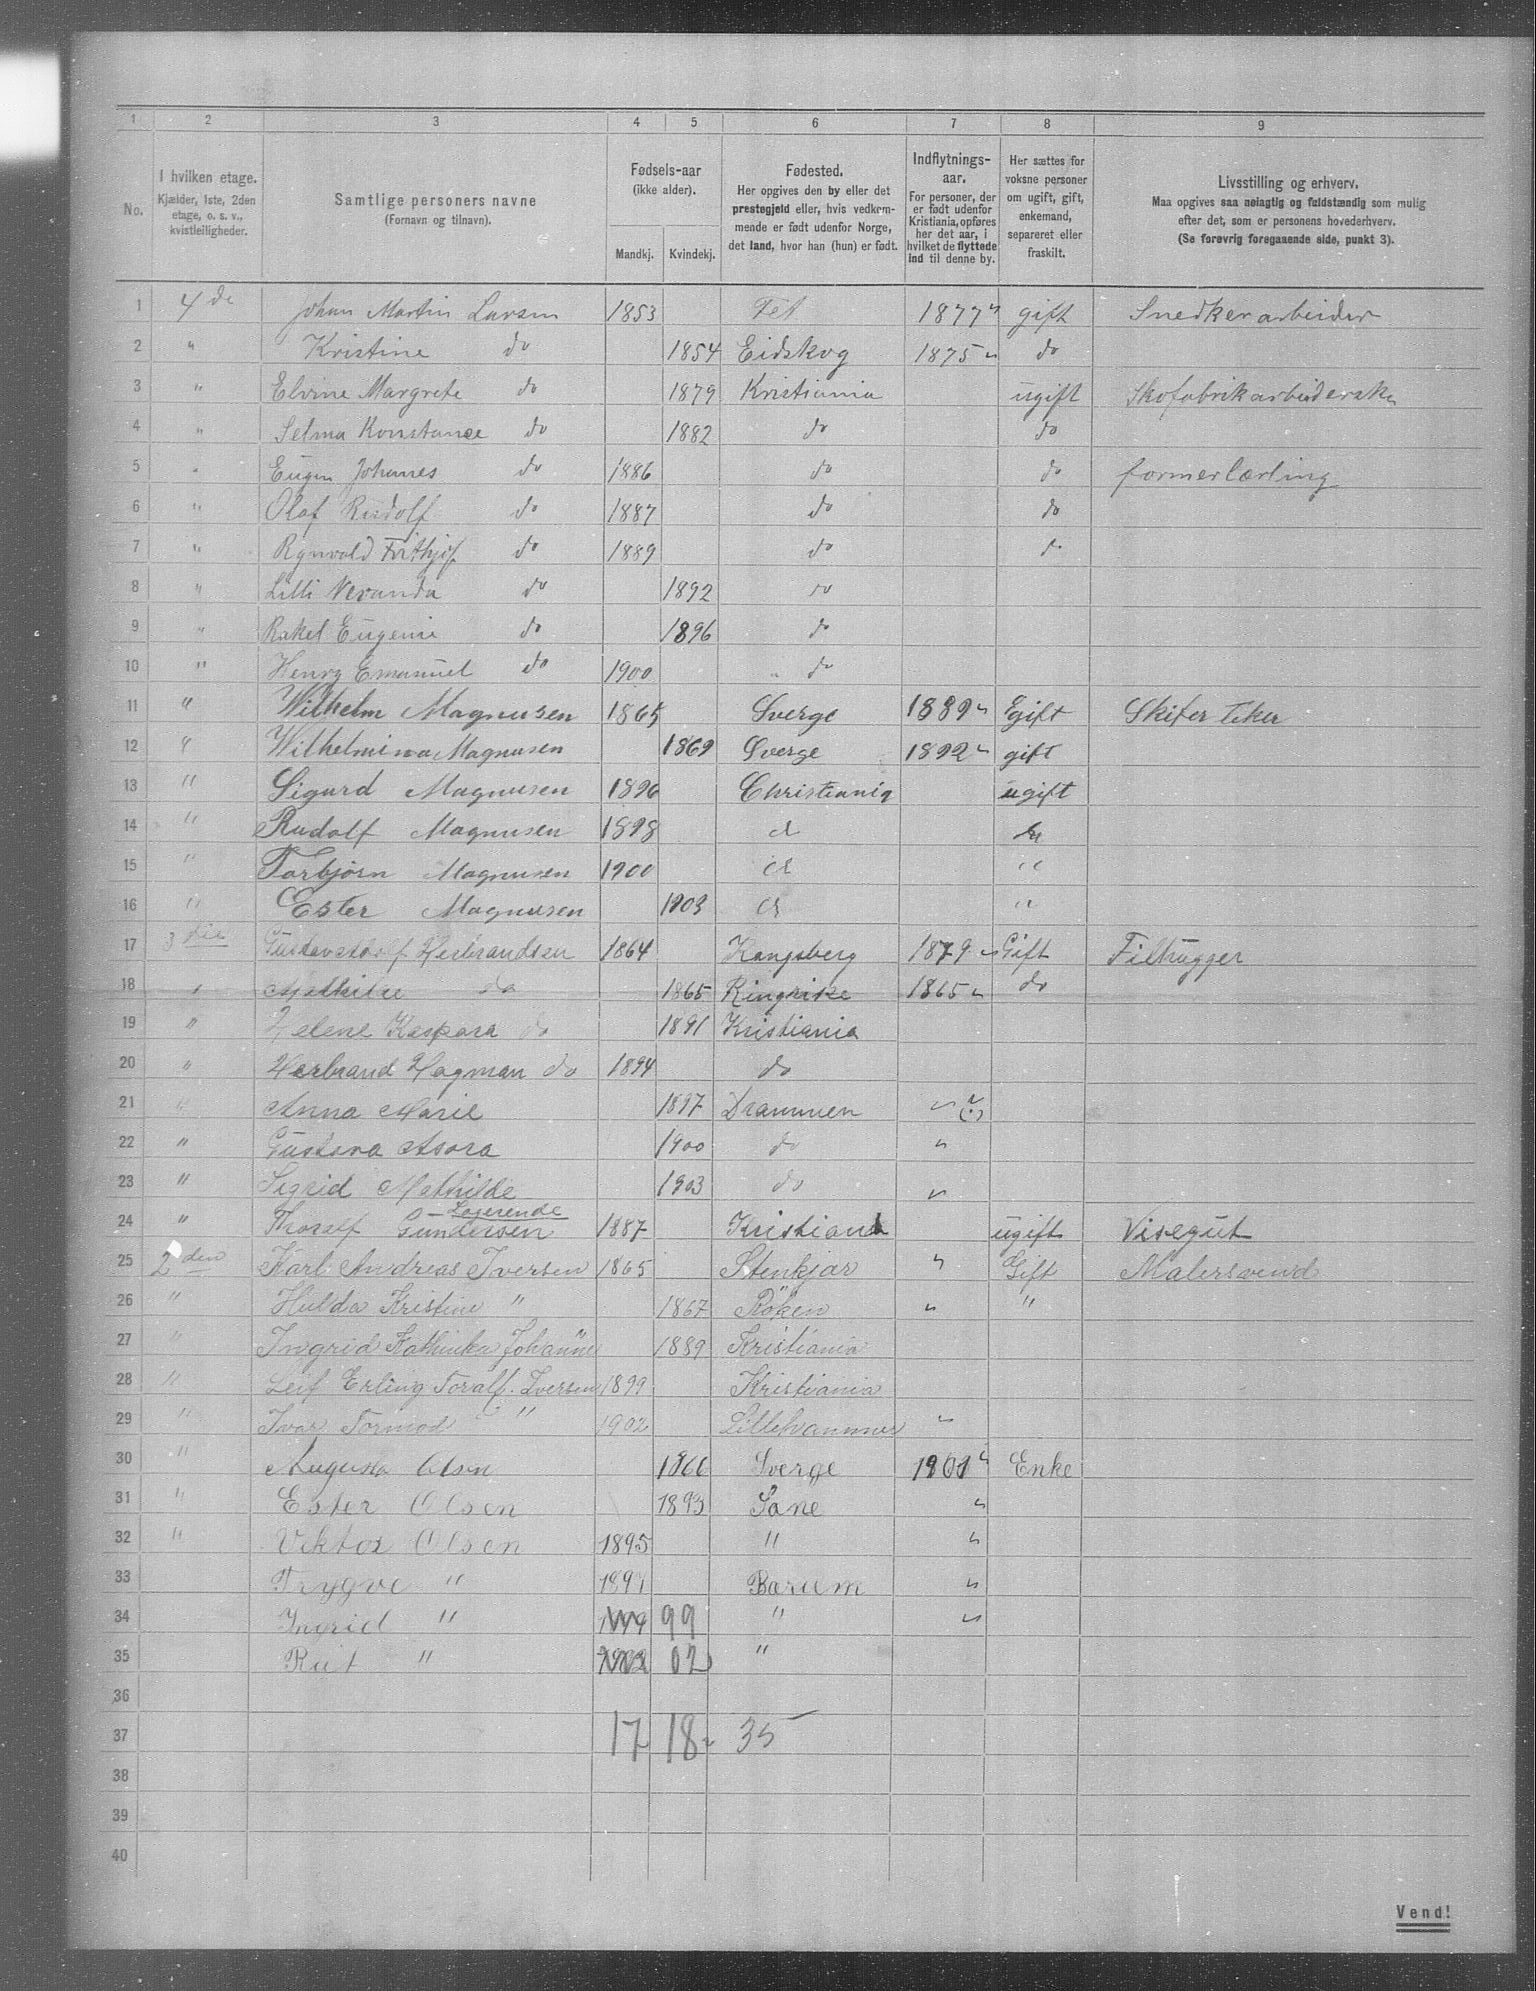 1 2 3 4 5 6 7 8 9
No.
I hvilken etage.
Kjælder, 1ste, 2den
etage, o. s. v.,
kvistleiligheder.
Samtlige personers navne
(Fornavn og tilnavn).
Fødsels-aar
(ikke alder).
Mandkj. Kvindekj.
Fødested.
Her opgives den by eller det
prestegjeld eller, hvis vedkom-
mende er født udenfor Norge,
det land, hvor han (hun) er født.
Indflytnings-
aar.
For personer, der
er født udenfor
Kristiania, opføres
her det aar, i
hvilket de flyttede
ind til denne by.
Her sættes for
voksne personer
om ugift, gift,
enkemand,
separeret eller
fraskilt.
Livsstilling og erhverv.
Maa opgives saa nøiagtig og fuldstændig som mulig
efter det, som er personens hovederhverv.
(Se forøvrig foregaaende side, punkt 3).
1 4 de Johan Martin Larsen 1853 Fet 1877 gift Snedkerarbeider
2 " Kristine do 1854 Eidskog 1875 do
3 " Elvine Margrete do 1879 Kristiania ugift Skofabrikarbeiderske
4 " Selma Konstance do 1882 do do
5 " Eugen Johanes do 1886 do do formerlærling
6 " Olaf Rudolf do 1887 do do
7 " Rgnvald Frithjof do 1889 do do
8 " Lilli Veranda do 1892 do
9 " Rakel Eugenie do 1896 do
10 " Henry Emanuel do 1900 " do
11 " Wilhelm Magnusen 1865 Sverge 1889 Egift Skifer teker
12 " Wilhelmina Magnusen 1869 Sverge 1892 gift
13 " Sigurd Magnusen 1896 Christiania ugift
14 " Rudolf Magnusen 1898 d
15 " Torbjørn Magnusen 1900 d "
16 " Ester Magnusen 1903 d "
17 3 die Gustav Herbrandsen 1864 Kongsberg 1879 Gift Filhugger
18 " Mathilde do 1865 Ringrike 1865 do
19 " Helene Kaspara do 1891 Kristiania
20 " Herbrand Hagman do 1894 do
21 " Anna Marie 1897 Drammen
22 " Gustava Asora 1900 do
23 " Sigrid Mathilde 1903 do
Losjerende
24 " Thoralf Gundersen 1887 Kristiania ugift Visergut
25 2 den Karl Andreas Iversen 1865 Stenkjær Gift Malersvend
26 " Hulda Kristine " 1867 Röken "
27 " Ingrid Kathinka Johanne 1889 Kristiania
28 " Leif Erling Toralf. Iversen 1899 Kristiania
29 " Ivar Tormod " 1902 Lillehammer
30 " Augusta Olsen 1866 Sverge 1901 Enke
31 " Ester Olsen 1893 Sane
32 " Viktor Olsen 1895 "
33 Trygve " 1897 Barum
34 Ingrid " 99 "
35 Rut " 02 "
36
37 17 18 35
38
39
40
Vend!